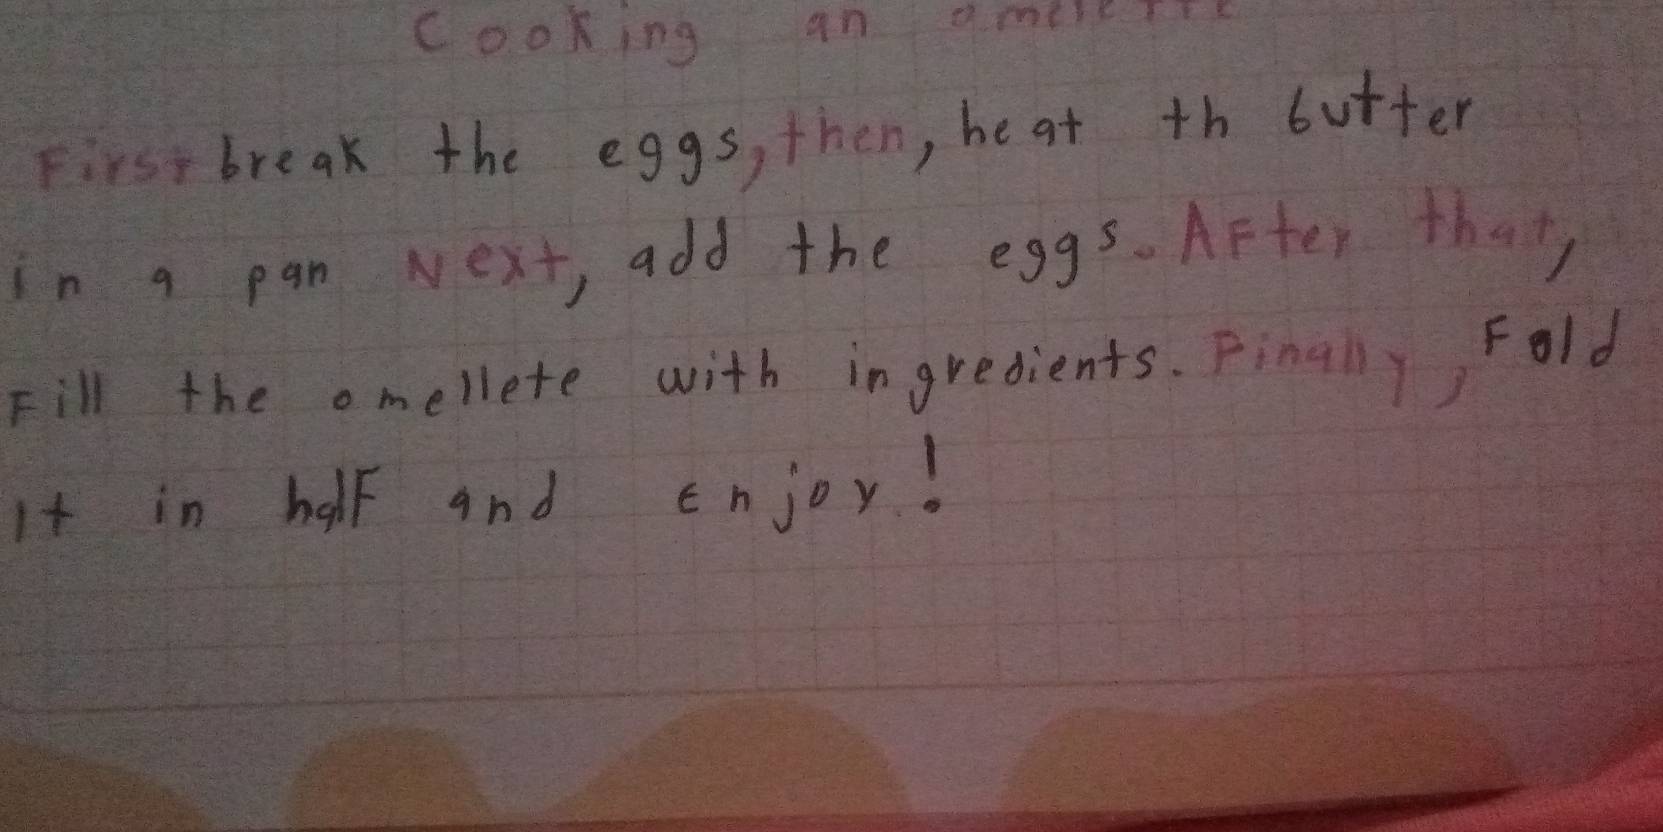 Cooking an omelette
First break the eggs, then, heat th butter
in a pan Next, add the eggs. AFter that,
Fill the omellete with ingredients. Finally, Fold
It in halF and Enjoy.!